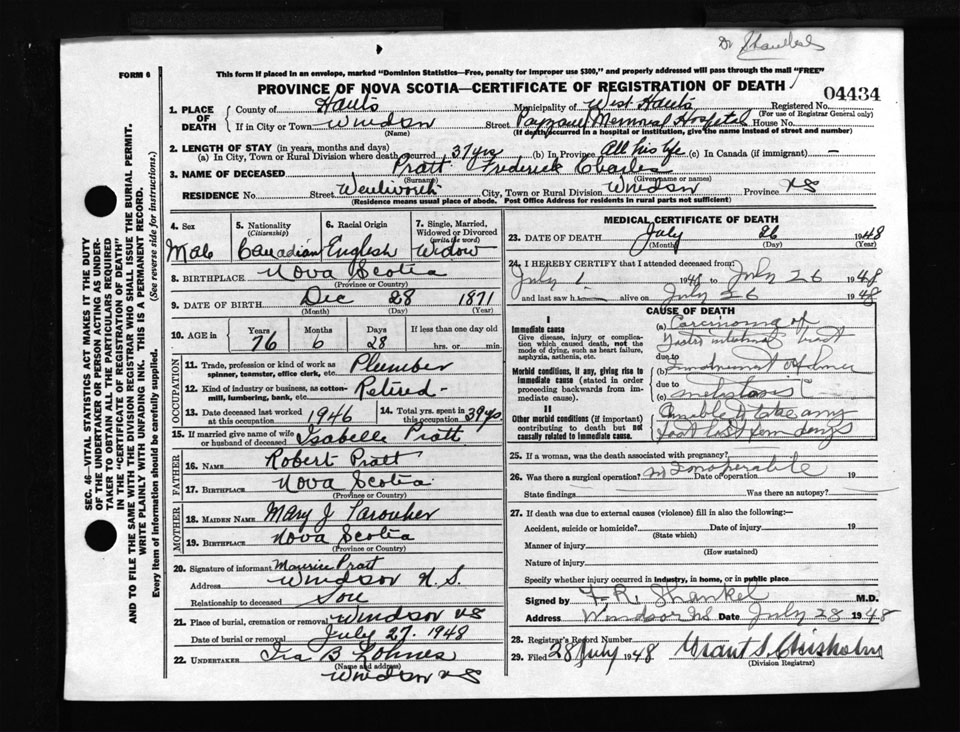 Dr Shankel
FORM 6
This form if placed in an envelope, marked "Dominion Statistics—Free, penalty for improper use $300," and properly addressed will pass through the mail "FREE"
PROVINCE OF NOVA SCOTIA—CERTIFICATE OF REGISTRATION OF DEATH
04434
1. PLACE OF DEATH County of Hants Municipality of West Hants Registered No.
(For use of Registrar General only)
If in City or Town Windsor Street Payzant Memorial Hospital House No.
(Name) (If death occurred in a hospital or institution, give the name instead of street and number)
2. LENGTH OF STAY (in years, months and days)
(a) In City, Town or Rural Division where death occurred 37 yrs (b) In Province All his life (c) In Canada (if immigrant) —
3. NAME OF DECEASED Pratt Frederick Charles
(Surname) (Given name or names)
RESIDENCE No. Street Wentworth City, Town or Rural Division Windsor Province NS
(Residence means usual place of abode. Post Office Address for residents in rural parts not sufficient)
4. Sex 5. Nationality (Citizenship) 6. Racial Origin 7. Single, Married, Widowed or Divorced (write the word)
Male Canadian English Widow
8. BIRTHPLACE Nova Scotia
(Province or Country)
9. DATE OF BIRTH Dec 28 1871
(Month) (Day) (Year)
10. AGE in Years Months Days If less than one day old
76 6 28 hrs. or min.
OCCUPATION
11. Trade, profession or kind of work as spinner, teamster, office clerk, etc. Plumber
12. Kind of industry or business, as cotton-mill, lumbering, bank, etc. Retired -
13. Date deceased last worked at this occupation 1946 14. Total yrs. spent in this occupation 39 yrs
15. If married give name of wife or husband of deceased Isabelle Pratt
FATHER
16. NAME Robert Pratt
17. BIRTHPLACE Nova Scotia
(Province or Country)
MOTHER
18. MAIDEN NAME Mary J
19. BIRTHPLACE Nova Scotia
(Province or Country)
20. Signature of informant Maurice Pratt
Address Windsor N.S.
Relationship to deceased Son
21. Place of burial, cremation or removal Windsor NS
Date of burial or removal July 27. 1948
22. UNDERTAKER Ira B Lohnes
(Name and address)
Windsor NS
MEDICAL CERTIFICATE OF DEATH
23. DATE OF DEATH July 26 1948
(Month) (Day) (Year)
24. I HEREBY CERTIFY that I attended deceased from:
July 1 1948 to July 26 1948
and last saw h alive on July 26 1948
CAUSE OF DEATH
I
Immediate cause
Give disease, injury or complication which caused death, not the mode of dying, such as heart failure, asphyxia, asthenia, etc.
(a) Carcinoma of
Gastro intestinal tract
due to
Morbid conditions, if any, giving rise to immediate cause (stated in order proceeding backwards from immediate cause).
(b)
due to
(c) metastasis
II
Other morbid conditions (if important) contributing to death but not causally related to immediate cause.
Unable to take any
food last few days
25. If a woman, was the death associated with pregnancy?
26. Was there a surgical operation? Inoperable Date of operation 19
State findings Was there an autopsy?
27. If death was due to external causes (violence) fill in also the following:—
Accident, suicide or homicide? Date of injury 19
(State which)
Manner of injury
(How sustained)
Nature of injury
Specify whether injury occurred in industry, in home, or in public place
Signed by F. R. Shankel M.D.
Address Windsor NS Date July 28 1948
28. Registrar's Record Number
29. Filed 28 July 1948 Grant S Chisholm
(Division Registrar)
SEC. 46—VITAL STATISTICS ACT MAKES IT THE DUTY
OF THE UNDERTAKER OR PERSON ACTING AS UNDER-
TAKER TO OBTAIN ALL THE PARTICULARS REQUIRED
IN THE "CERTIFICATE OF REGISTRATION OF DEATH"
AND TO FILE THE SAME WITH THE DIVISION REGISTRAR WHO SHALL ISSUE THE BURIAL PERMIT.
WRITE PLAINLY WITH UNFADING INK. THIS IS A PERMANENT RECORD.
Every item of information should be carefully supplied. (See reverse side for instructions.)